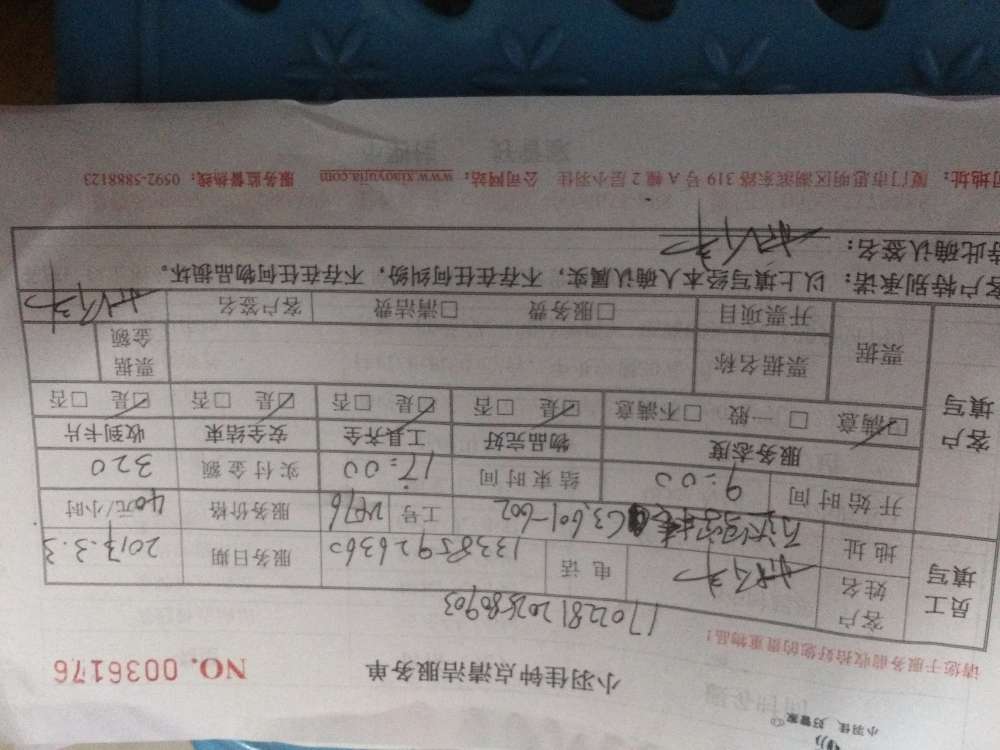 小羽佳，好管家
小羽佳钟点清洁服务单 NO. 0036176
请您于服务前收拾好您的贵重物品！
17022812025880903
员工填写 客户姓名 电话 13385926360 服务日期 2017.3.3
地址 C3,601-602 工号 服务价格 40元/小时
开始时间 9:00 结束时间 17:00 实付金额 320
客户填写 服务态度 物品完好 工具齐全 安全结束 收到卡片
☑满意 □一般 □不满意 ☑是 □否 ☑是 □否 ☑是 □否 ☑是 □否
票据 票据名称 票据金额
开票项目 □服务费 □清洁费 客户签名
客户特别承诺：以上填写经本人确认属实，不存在任何纠纷，不存在任何物品损坏。
特此确认签名：
司地址：厦门市思明区湖滨东路 319 号 A 幢 2 层小羽佳 公司网站：www.xiaoyujia.com 服务监督热线：0592-5888123